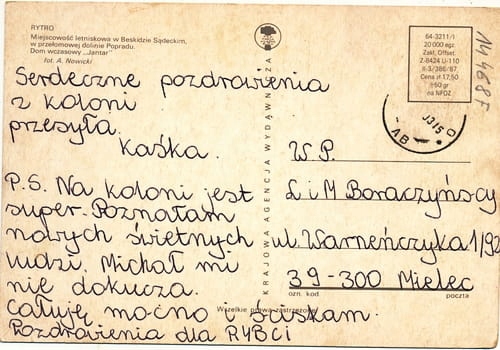 RYTRO
Miejscowość letniskowa w Beskidzie Sądeckim,
w przełomowej dolinie Popradu.
Dom wczasowy „Jantar"
fot. A. Nowicki
Serdeczne pozdrowienia
z koloni
przesyła.
Kaśka.
P.S. Na koloni jest
super. Poznałam
nowych świetnych
ludzi. Michał mi
nie dokucza.
Całuję mocno i ściskam.
Pozdrowienia dla RYBCI
KRAJOWA AGENCJA WYDAWNICZA
64-3211/1
20 000 egz.
Zakł. Offset.
Z-8424 U-110
II-3/386/87
Cena zł 17,50
+50 gr
na NFOZ
14468F
W.P.
L i M Boraczyńscy
ul. Warneńczyka 1/92
39-300 Mielec
ozn. kod poczta
Wszelkie prawa zastrzeżone